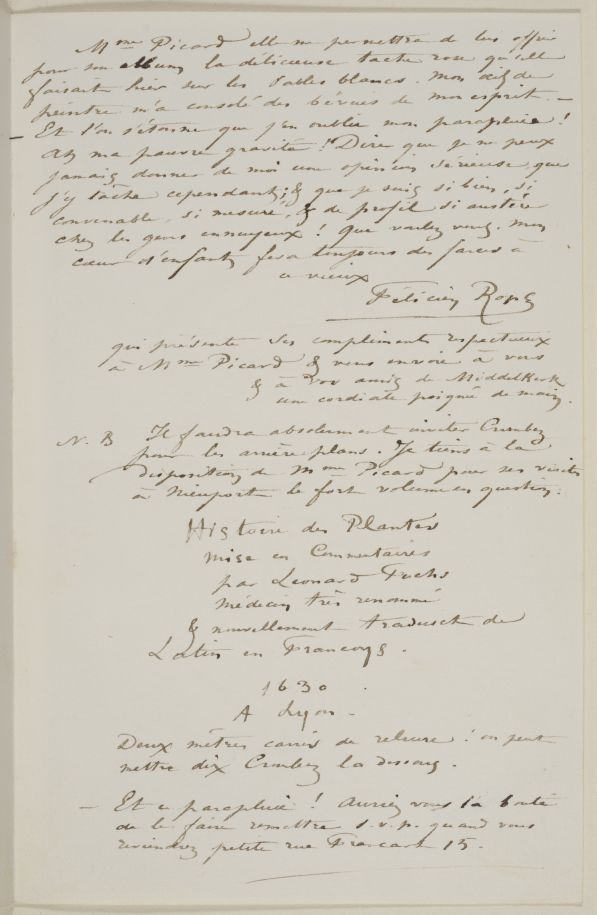 Mme Picard elle me permettra de lui offrir
pour son album la délicieuse tache rose qu'elle
faisait hier sur les sables blancs. Mon œil de
peintre m'a consolé des bévues de mon esprit. –
– Et l'on s'étonne que j'en oublie mon parapluie !
Ah ma pauvre gravité ! Dire que je ne peux
jamais donner de moi une opinion sérieuse que
j'y tâche cependant, & que je suis si bien, si
convenable, si mesuré, & de profil si austère
chez les gens ennuyeux ! Que voulez vous, mon
cœur d'enfant fera toujours des farces à
ce vieux
Félicien Rops
qui présente ses compliments respectueux
à Mme Picard & vous envoie à vous
& à vos amis de Middelkerke
une cordiale poignée de main.
N. B Il faudra absolument inviter Crombez
pour les arrière plans. Je tiens à la
disposition de Mme Picard pour ses visites
à Nieuport le fort volume en question :
Histoire des Plantes
mise en Commentaires
par Leonard Fuchs
médecin très renommé
& nouvellement traduict de
Latin en Françoys.
1630.
A Lyon –
Deux mètres carrés de reliure ! on peut
mettre dix Crombez là dessous.
– Et ce parapluie ! Auriez vous la bonté
de le faire remettre s.v.p. quand vous
reviendrez petite rue Francart 15.